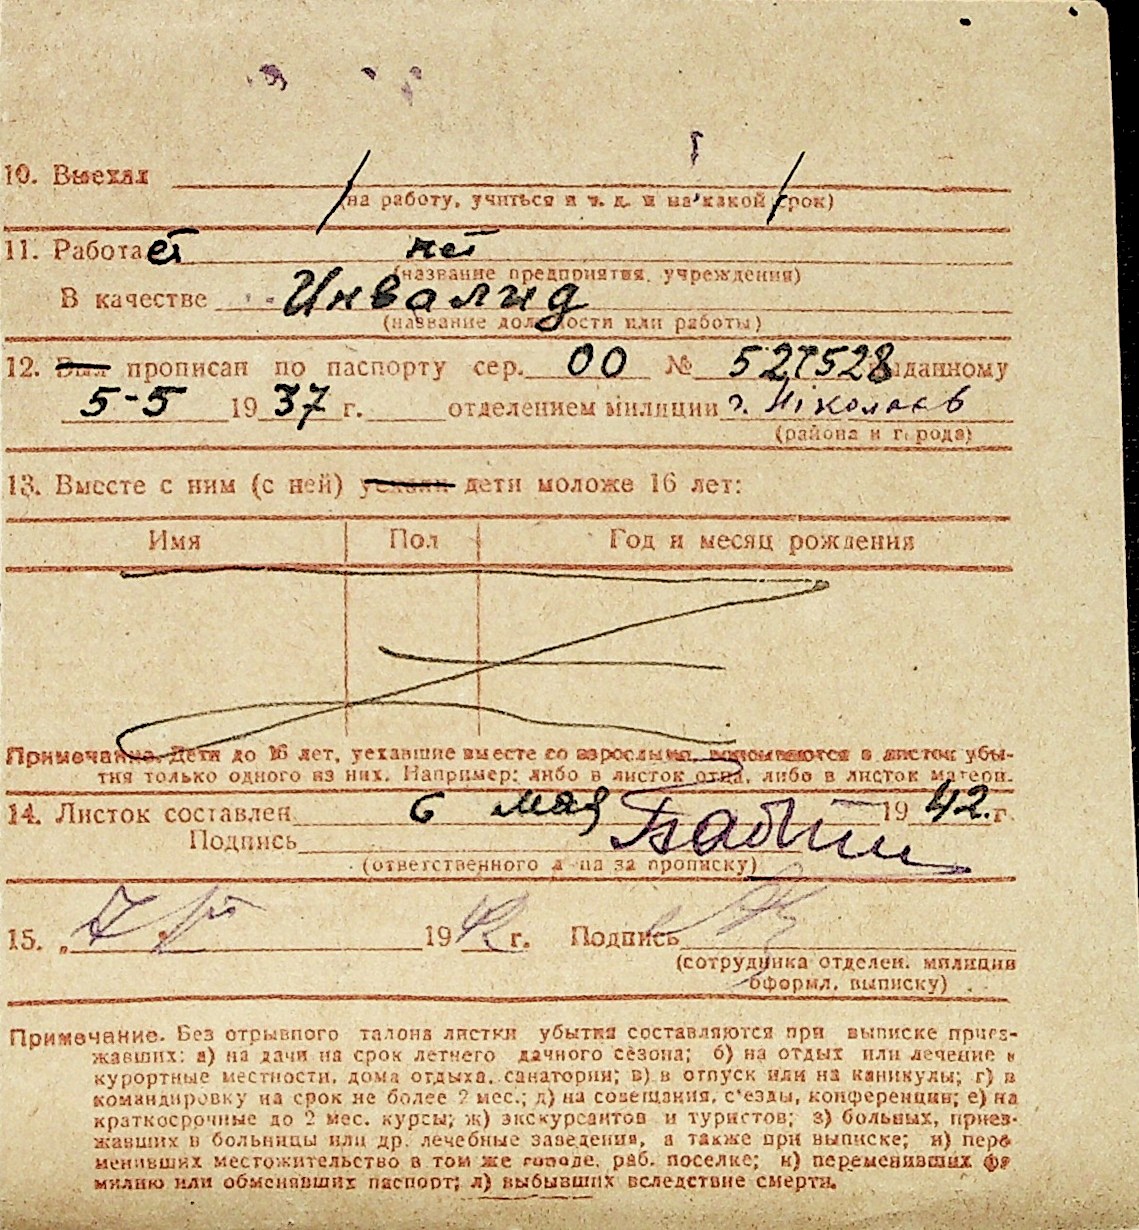 10. Выехал
(на работу, учиться и т. д. и на какой срок)
11. Работает нет
(название предприятия, учреждения)
В качестве Инвалид
(название должности или работы)
12. Был прописан по паспорту сер. 00 № 527528 выданному
5-5 1937 г. отделением милиции г. Ніколаєв
(района и города)
13. Вместе с ним (с ней) уехали дети моложе 16 лет:
Имя Пол Год и месяц рождения
Примечание. Дети до 16 лет, уехавшие вместе со взрослыми, вписываются в листок убы-
тия только одного из них. Например: либо в листок отца, либо в листок матери.
14. Листок составлен 6 мая 1942. г.
Подпись
(ответственного лица за прописку)
15. „7 1942 г. Подпись
(сотрудника отделен. милиции
оформл. выписку)
Примечание. Без отрывного талона листки убытия составляются при выписке приез-
жавших: а) на дачи на срок летнего дачного сезона; б) на отдых или лечение в
курортные местности, дома отдыха, санатории; в) в отпуск или на каникулы; г) в
командировку на срок не более 2 мес.; д) на совещания, с'езды, конференции; е) на
краткосрочные до 2 мес. курсы; ж) экскурсантов и туристов; з) больных, приез-
жавших в больницы или др. лечебные заведения, а также при выписке; и) пере
менивших местожительство в том же городе, раб. поселке; к) переменивших фа
милию или обменявших паспорт; л) выбывших вследствие смерти.